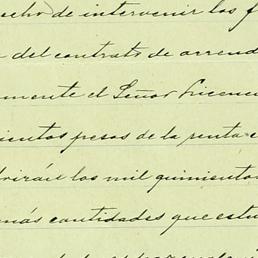 echo de intervenir los f
del contrato de arrend
mente el Señor Licenc
ientos pesos de la renta
brirán los mil quinientos
más cantidades que estu